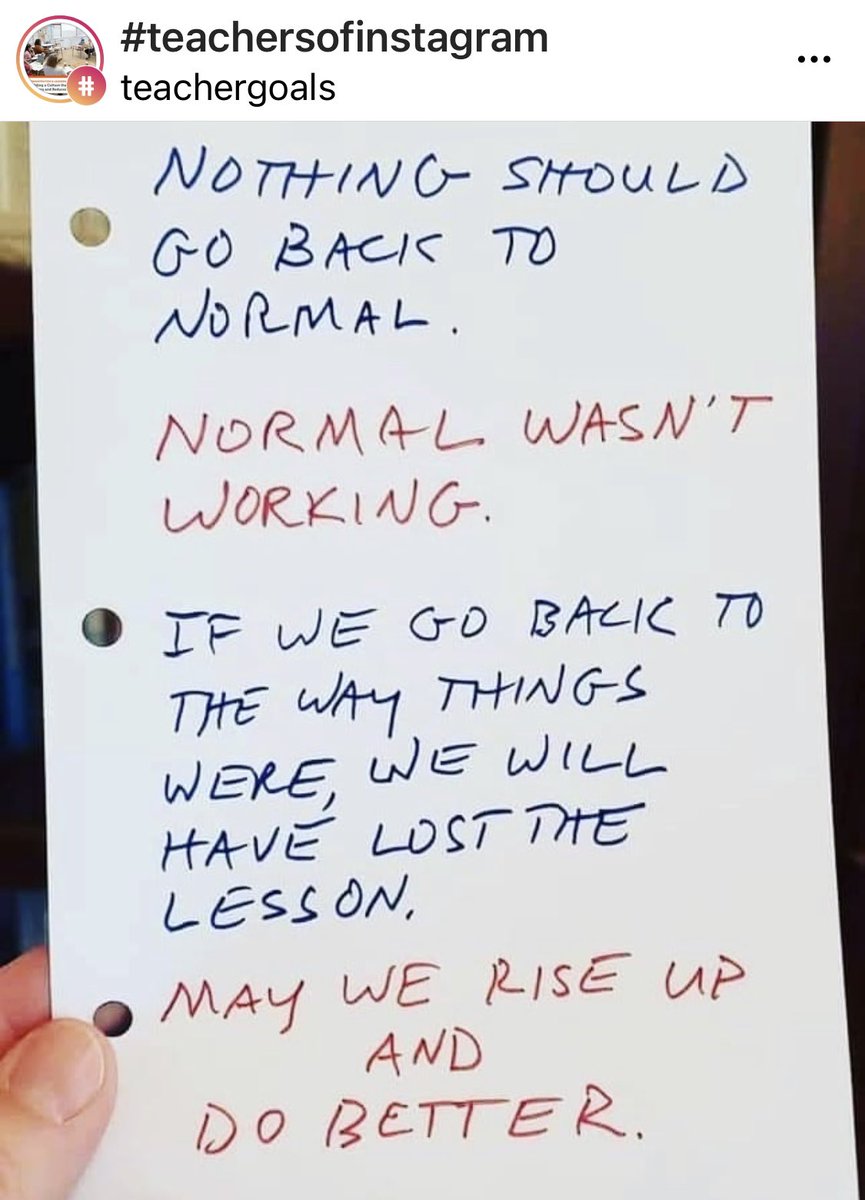 #teachersofinstagram
teachergoals
#
NOTHING SHOULD
GO BACK TO
NORMAL.
NORMAL WASN'T
WORKING.
IF WE GO BACK TO
THE WAY THINGS
WERE, WE WILL
HAVE LOST THE
LESSON.
MAY WE RISE UP
AND
DO BETTER.